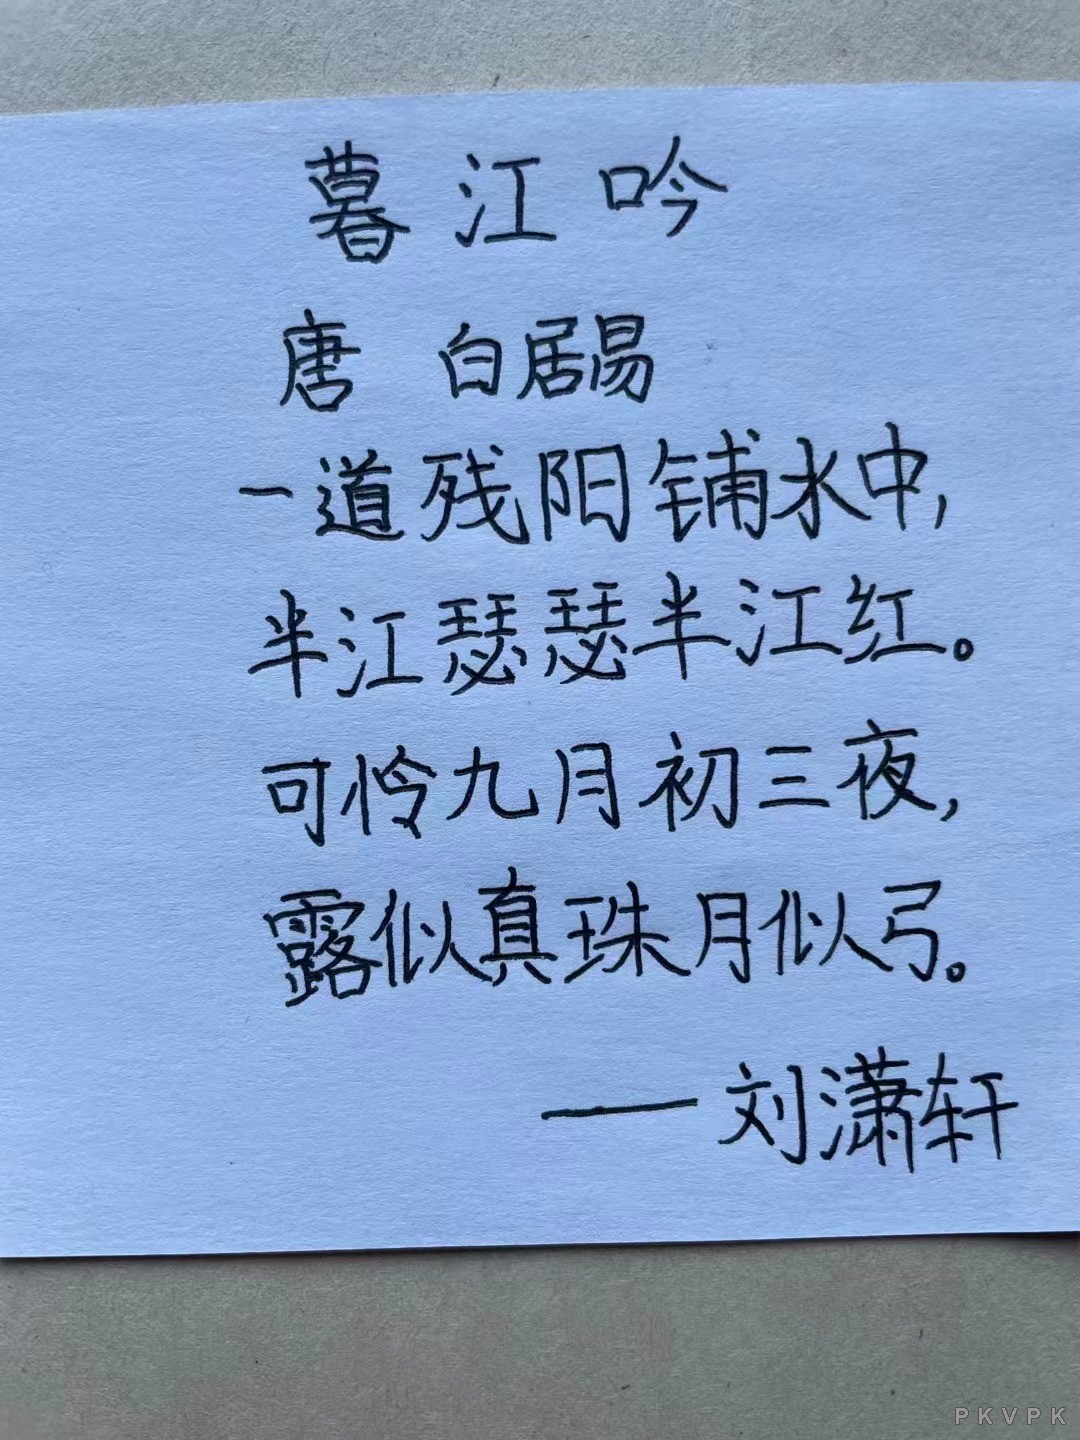 暮江吟
唐 白居易
一道残阳铺水中，
半江瑟瑟半江红。
可怜九月初三夜，
露似真珠月似弓。
——刘潇轩
PKVPK